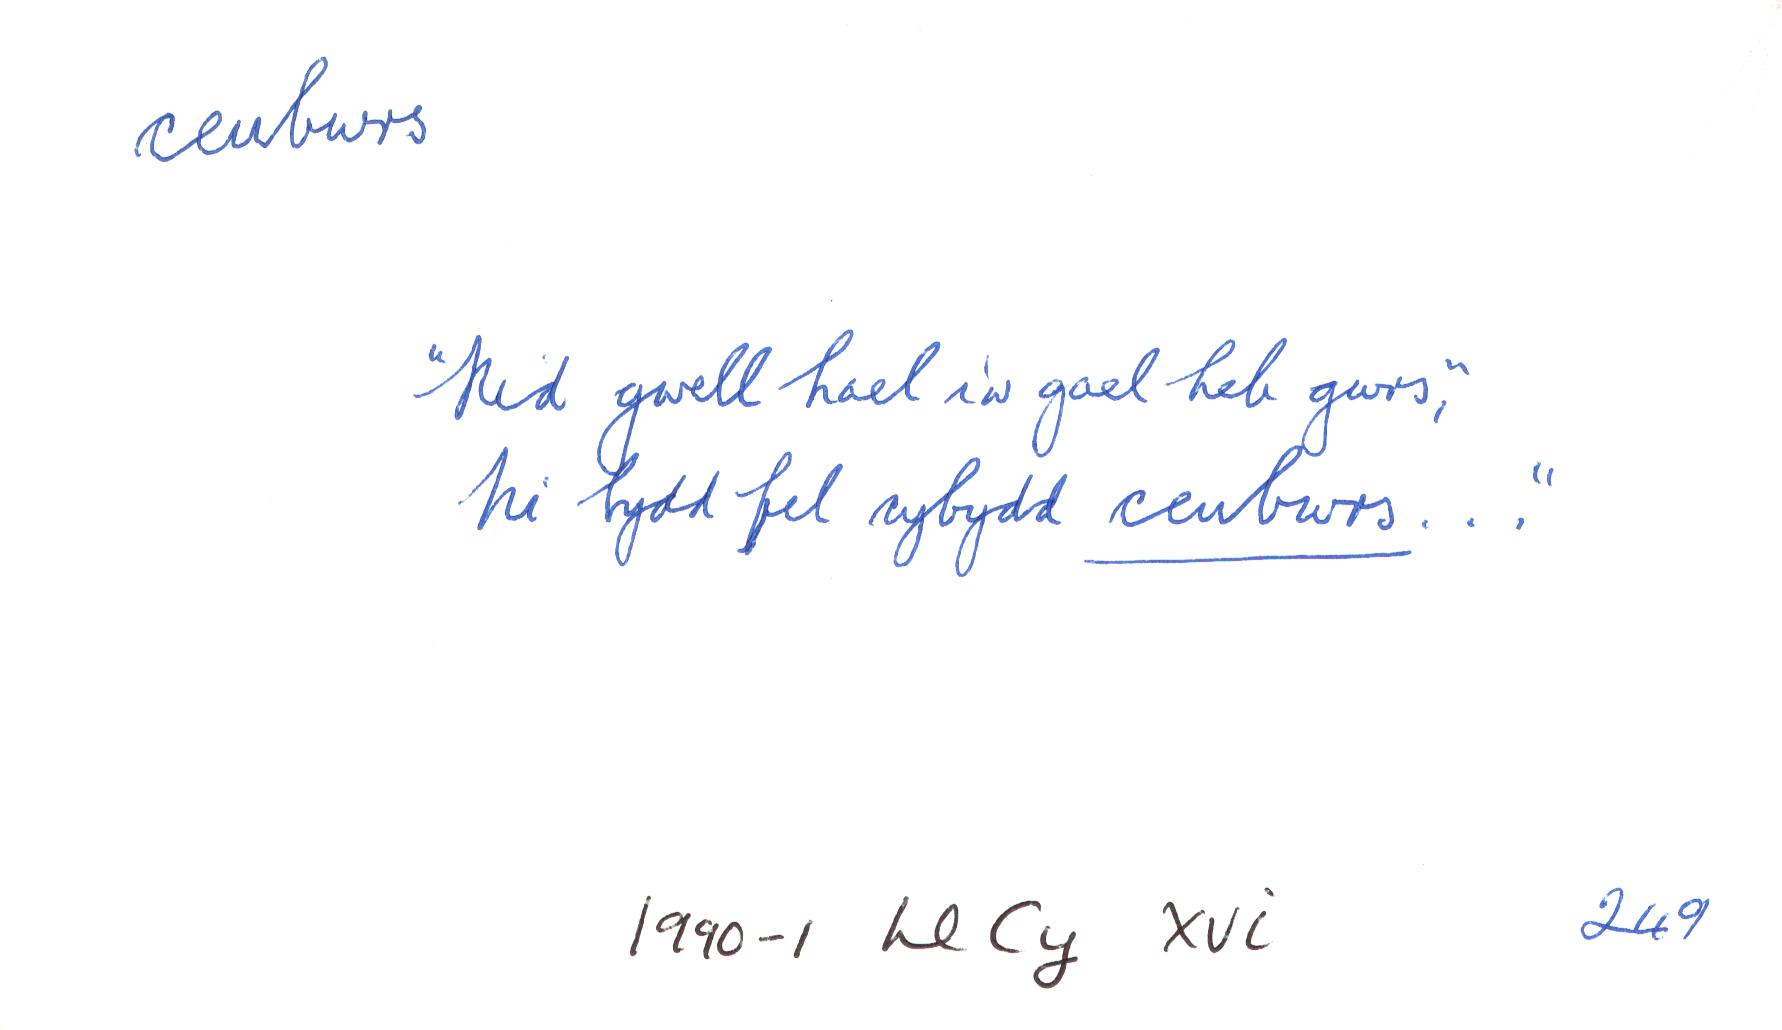 ceubwrs
"Nid gwell hael i'w gael heb gwrs,"
Ni bydd fel cybydd ceubwrs . . ."
1990-1 Ll Cy xvi 249